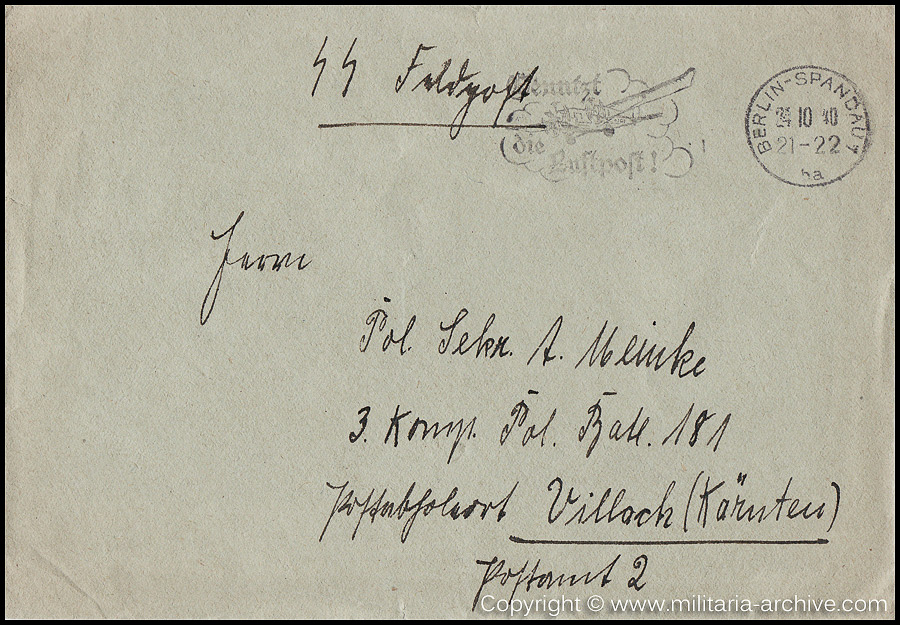 SS Feldpost
Benutzt
die
Luftpost!
BERLIN-SPANDAU 1
24.10.40
21-22
ha
Herrn
Pol. Sekr. A. Meinke
3. Komp. Pol. Batl. 181
Postabholort Villach (Kärnten)
Postamt 2
Copyright © www.militaria-archive.com